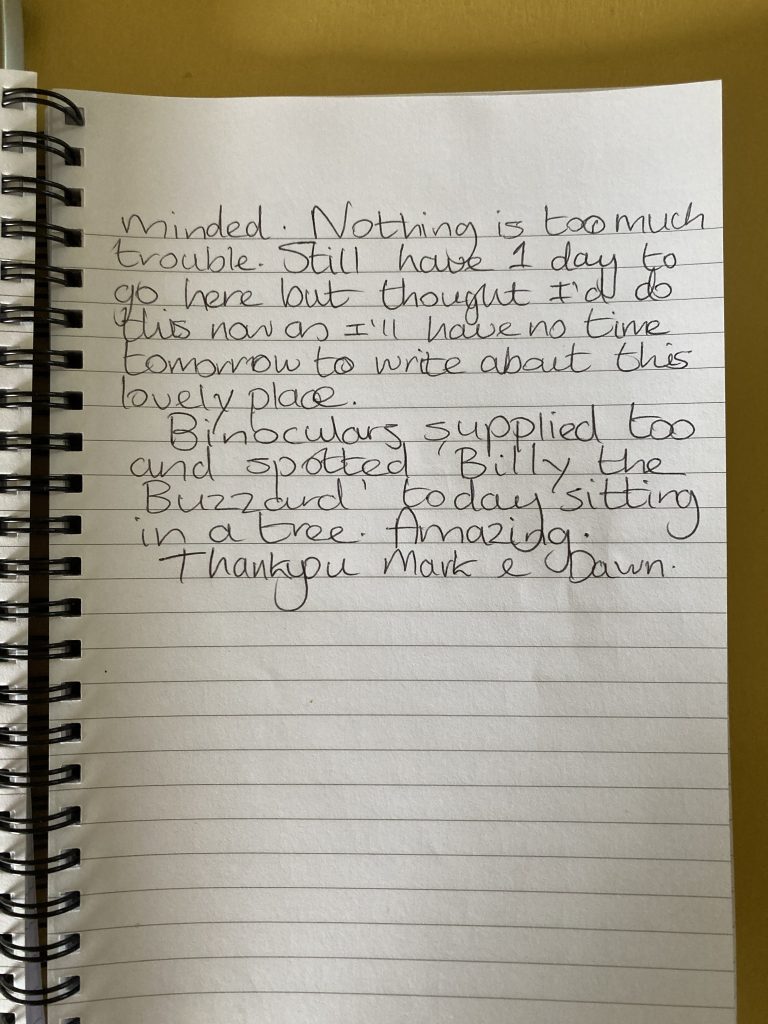 minded. Nothing is too much
trouble. Still have 1 day to
go here but thought I'd do
this now as I'll have no time
tomorrow to write about this
lovely place.
Binoculars supplied too
and spotted 'Billy the
Buzzard' today sitting
in a tree. Amazing.
Thankyou Mark & Dawn.